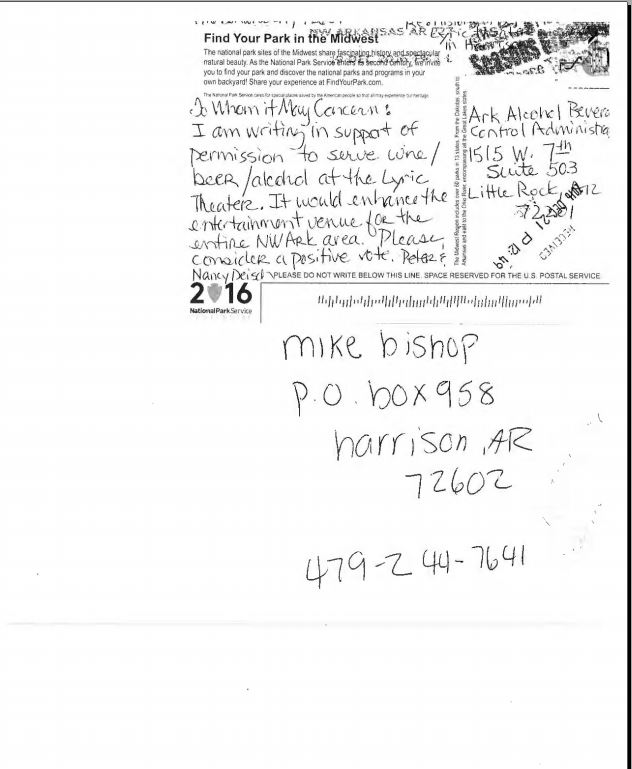 NW ARKANSAS AR
Find Your Park in the Midwest
The national park sites of the Midwest share fascinating history and spectacular
natural beauty. As the National Park Service enters its second century, we invite
you to find your park and discover the national parks and programs in your
own backyard! Share your experience at FindYourPark.com.
The National Park Service cares for special places saved by the American people so that all may experience our heritage.
To Whom it May Concern:
I am writing in support of
permission to serve wine/
beer/alcohol at the Lyric
Theater. It would enhance the
entertainment venue for the
entire NWArk area. Please,
consider a positive vote. Peter &
Nancy
Ark Alcohol Bevera
Control Administra
1515 W. 7th
Suite 503
Little Rock
RECEIVED
PLEASE DO NOT WRITE BELOW THIS LINE. SPACE RESERVED FOR THE U.S. POSTAL SERVICE.
2016
National Park Service
mike bishop
P.O. box 958
harrison, AR
72602
479-244-7641